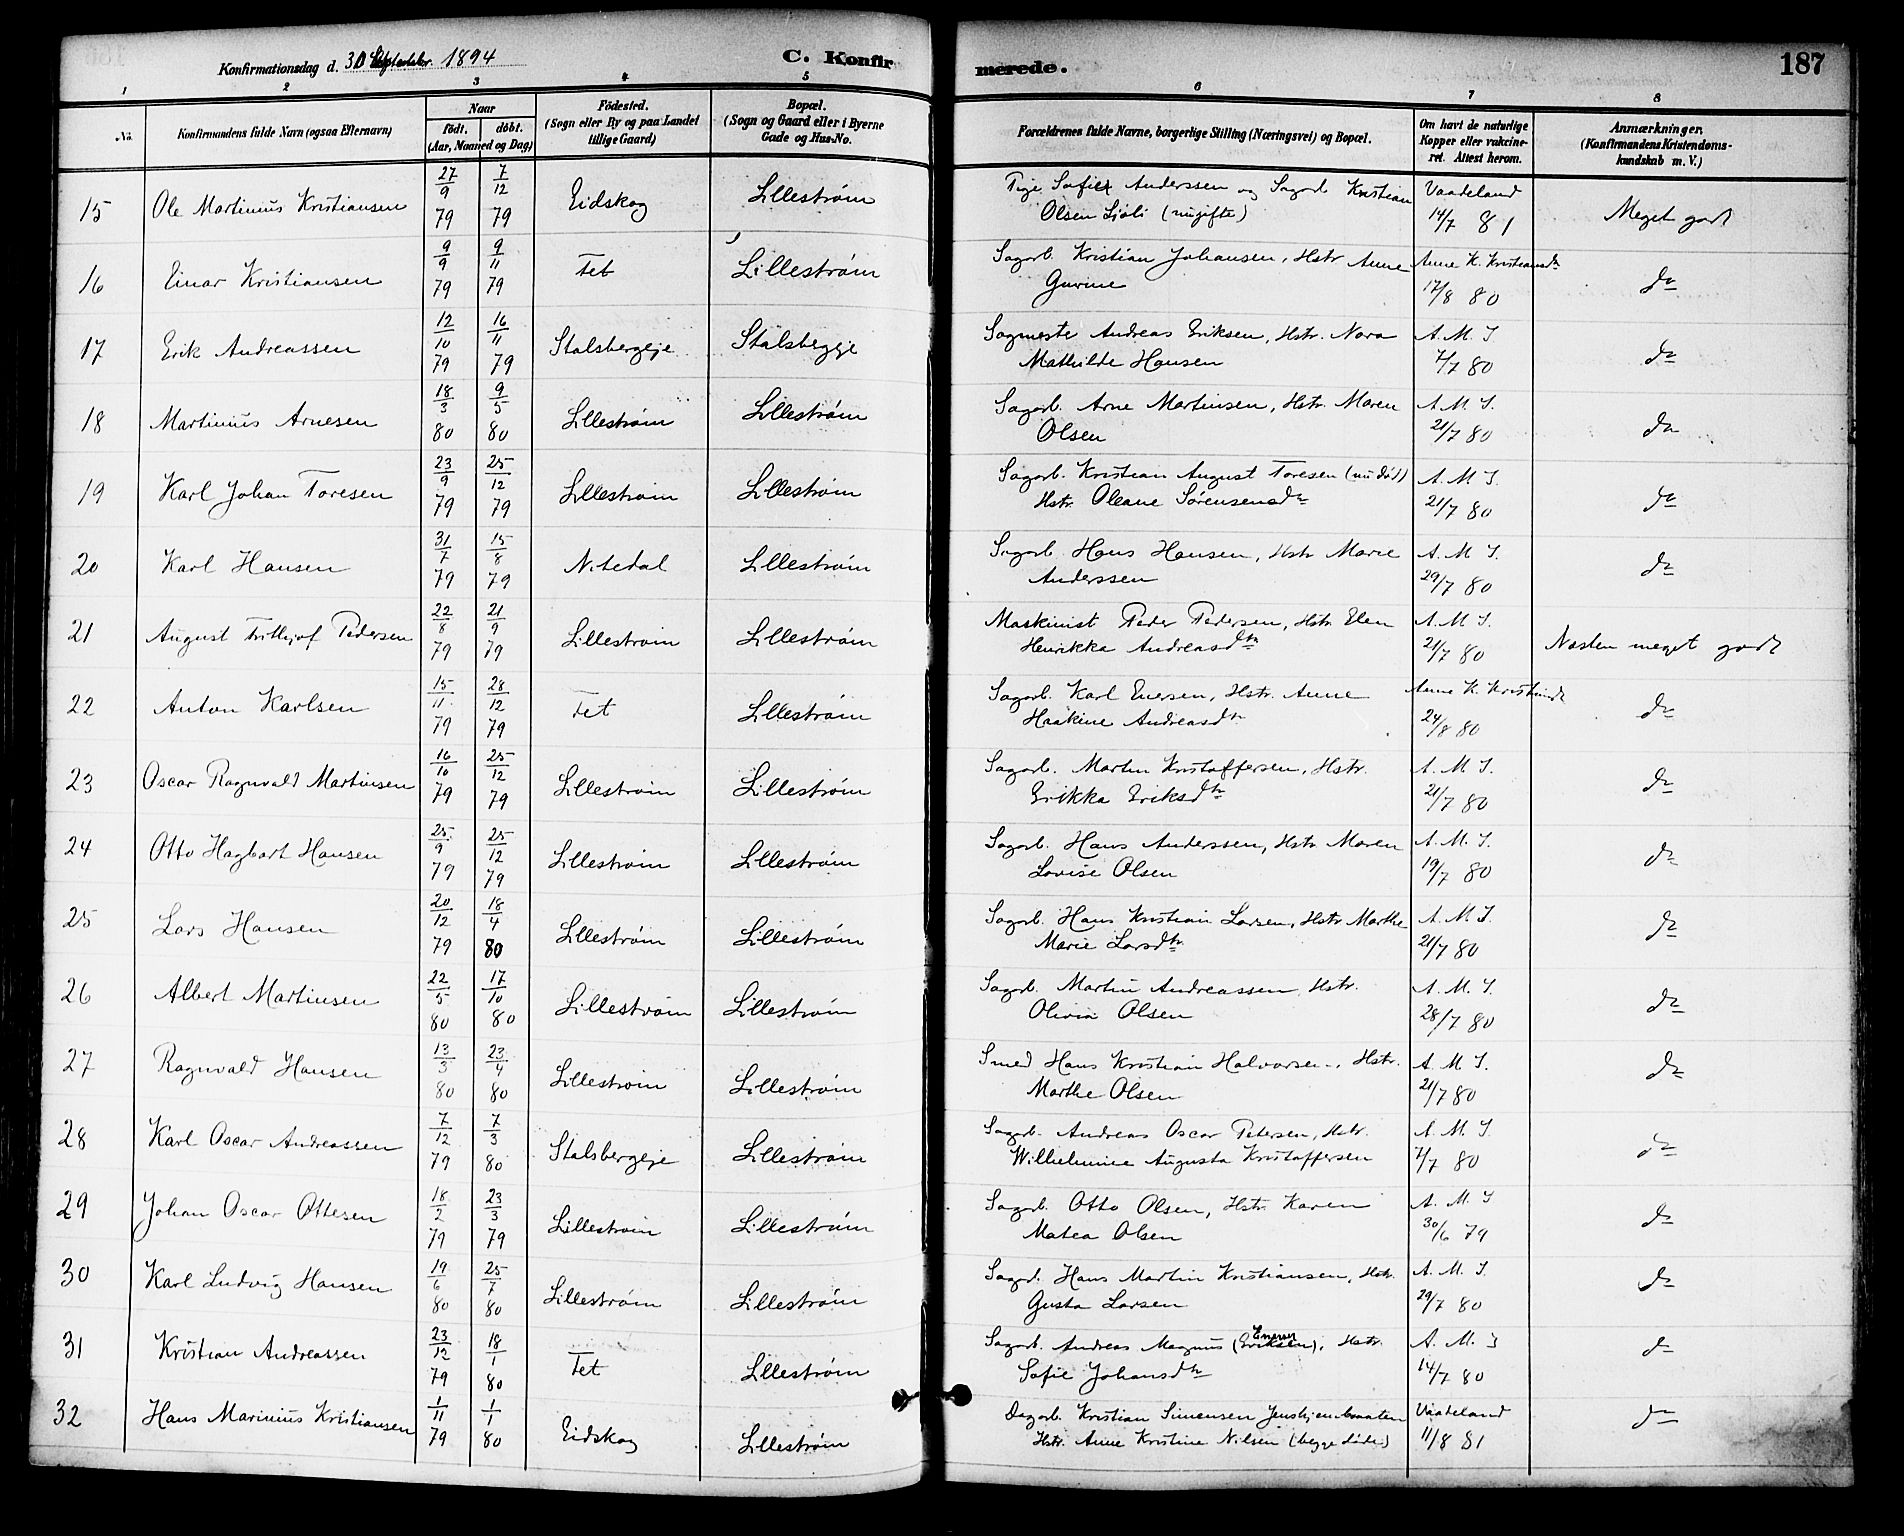 Konfirmationsdag d. 30 September 1894
C. Konfir
merede.
187
1 2 3 4 5 6 7 8
No.
Konfirmandens fulde Navn (ogsaa Efternavn)
Naar
født. døbt.
(Aar, Maaned og Dag)
Fødested.
(Sogn eller By og paa Landet
tillige Gaard)
Bopæl.
(Sogn og Gaard eller i Byerne
Gade og Hus-No.
Forældrenes fulde Navne, borgerlige Stilling (Næringsvei) og Bopæl.
Om havt de naturlige
Kopper eller vakcine-
ret. Attest herom.
Anmærkninger.
(Konfirmandens Kristendoms-
kundskab m. V.)
15 Ole Martinius Kristiansen 27/9 79 7/12 79 Eidskog Lillestrøm Pige Sofie Anderssen og Sagarb. Kristian Vaadeland
Olsen Sjøli (ugifte) 14/7 81 Meget godt
16 Einar Kristiansen 9/9 79 9/11 79 Fet Lillestrøm Sagarb. Kristian Johansen, Hstr. Anne Anne K. Kristiansdr
Gurine 17/8 80 do
17 Erik Andreassen 12/10 79 16/11 79 Stalsbergeje Stalsbegeje Sagmester Andreas Eriksen, Hstr. Nora A. M. I.
Mathilde Hansen 7/7 80 do
18 Martinius Arnesen 18/3 80 9/5 80 Lillestrøm Lillestrøm Sagarb. Arne Martinsen, Hstr. Maren A. M. I.
Olsen 21/7 80 do
19 Karl Johan Toresen 23/9 79 25/12 79 Lillestrøm Lillestrøm Sagarb. Kristian August Toresen (nu død) A. M. I.
Hstr. Oleane Sørensensdr 21/7 80 do
20 Karl Hansen 31/7 79 15/8 79 Nitedal Lillestrøm Sagarb. Hans Hansen, Hstr. Marie A. M. I.
Anderssen 29/7 80 do
21 August Frithjof Pedersen 22/8 79 21/9 79 Lillestrøm Lillestrøm Maskinist Peder Pedersen, Hstr. Elen A. M. I.
Henrikka Andreasdtr 21/7 80 Næsten meget godt
22 Anton Karlsen 15/11 79 28/12 79 Fet Lillestrøm Sagarb. Karl Enersen, Hstr. Anne Anne K.
Haakine Andreasdtr 24/8 80 do
23 Oscar Ragnvald Martinsen 16/10 79 25/12 79 Lillestrøm Lillestrøm Sagarb. Martin Kristoffersen, Hstr. A. M. I.
Erikka Eriksdtr 21/7 80 do
24 Otto Hagbart Hansen 25/9 79 25/12 79 Lillestrøm Lillestrøm Sagarb. Hans Anderssen, Hstr. Maren A. M. I.
Lovise Olsen 19/7 80 do
25 Lars Hansen 20/12 79 18/4 80 Lillestrøm Lillestrøm Sagarb. Hans Kristian Larsen, Hstr. Marthe A. M. I.
Marie Larsdtr 21/7 80 do
26 Albert Martinsen 22/5 80 17/10 80 Lillestrøm Lillestrøm Sagarb. Martin Andreassen, Hstr. A. M. I.
Olivia Olsen 28/7 80 do
27 Ragnvald Hansen 13/3 80 23/4 80 Lillestrøm Lillestrøm Smed Hans Kristian Halvorsen, Hstr. A. M. I.
Marthe Olsen 21/7 80 do
28 Karl Oscar Andreassen 7/12 79 7/3 80 Stalsbergeje Lillestrøm Sagarb. Andreas Oscar Petersen, Hstr. A. M. I.
Wilhelmine Augusta Kristoffersen 7/7 80 do
29 Johan Oscar Ottesen 18/2 79 23/3 79 Lillestrøm Lillestrøm Sagarb. Otto Olsen, Hstr. Karen A. M. I
Matea Olsen 30/6 79 do
30 Karl Ludvig Hansen 19/6 80 25/7 80 Lillestrøm Lillestrøm Sagarb. Hans Martin Kristiansen, Hstr. A. M. I.
Gusta Larsen 29/7 80 do
31 Kristian Andreassen 23/12 79 18/1 80 Fet Lillestrøm Sagarb. Andreas Magnus (Eriksen) Enersen, Hstr. A. M. I
Sofie Johansdtr 14/7 80 do
32 Hans Marinius Kristiansen 1/11 79 1/1 80 Eidskog Lillestrøm Dagarb. Kristian Simensen Vaadeland
Hstr. Anne Kristine Nilsen (begge døde) 11/8 81 do